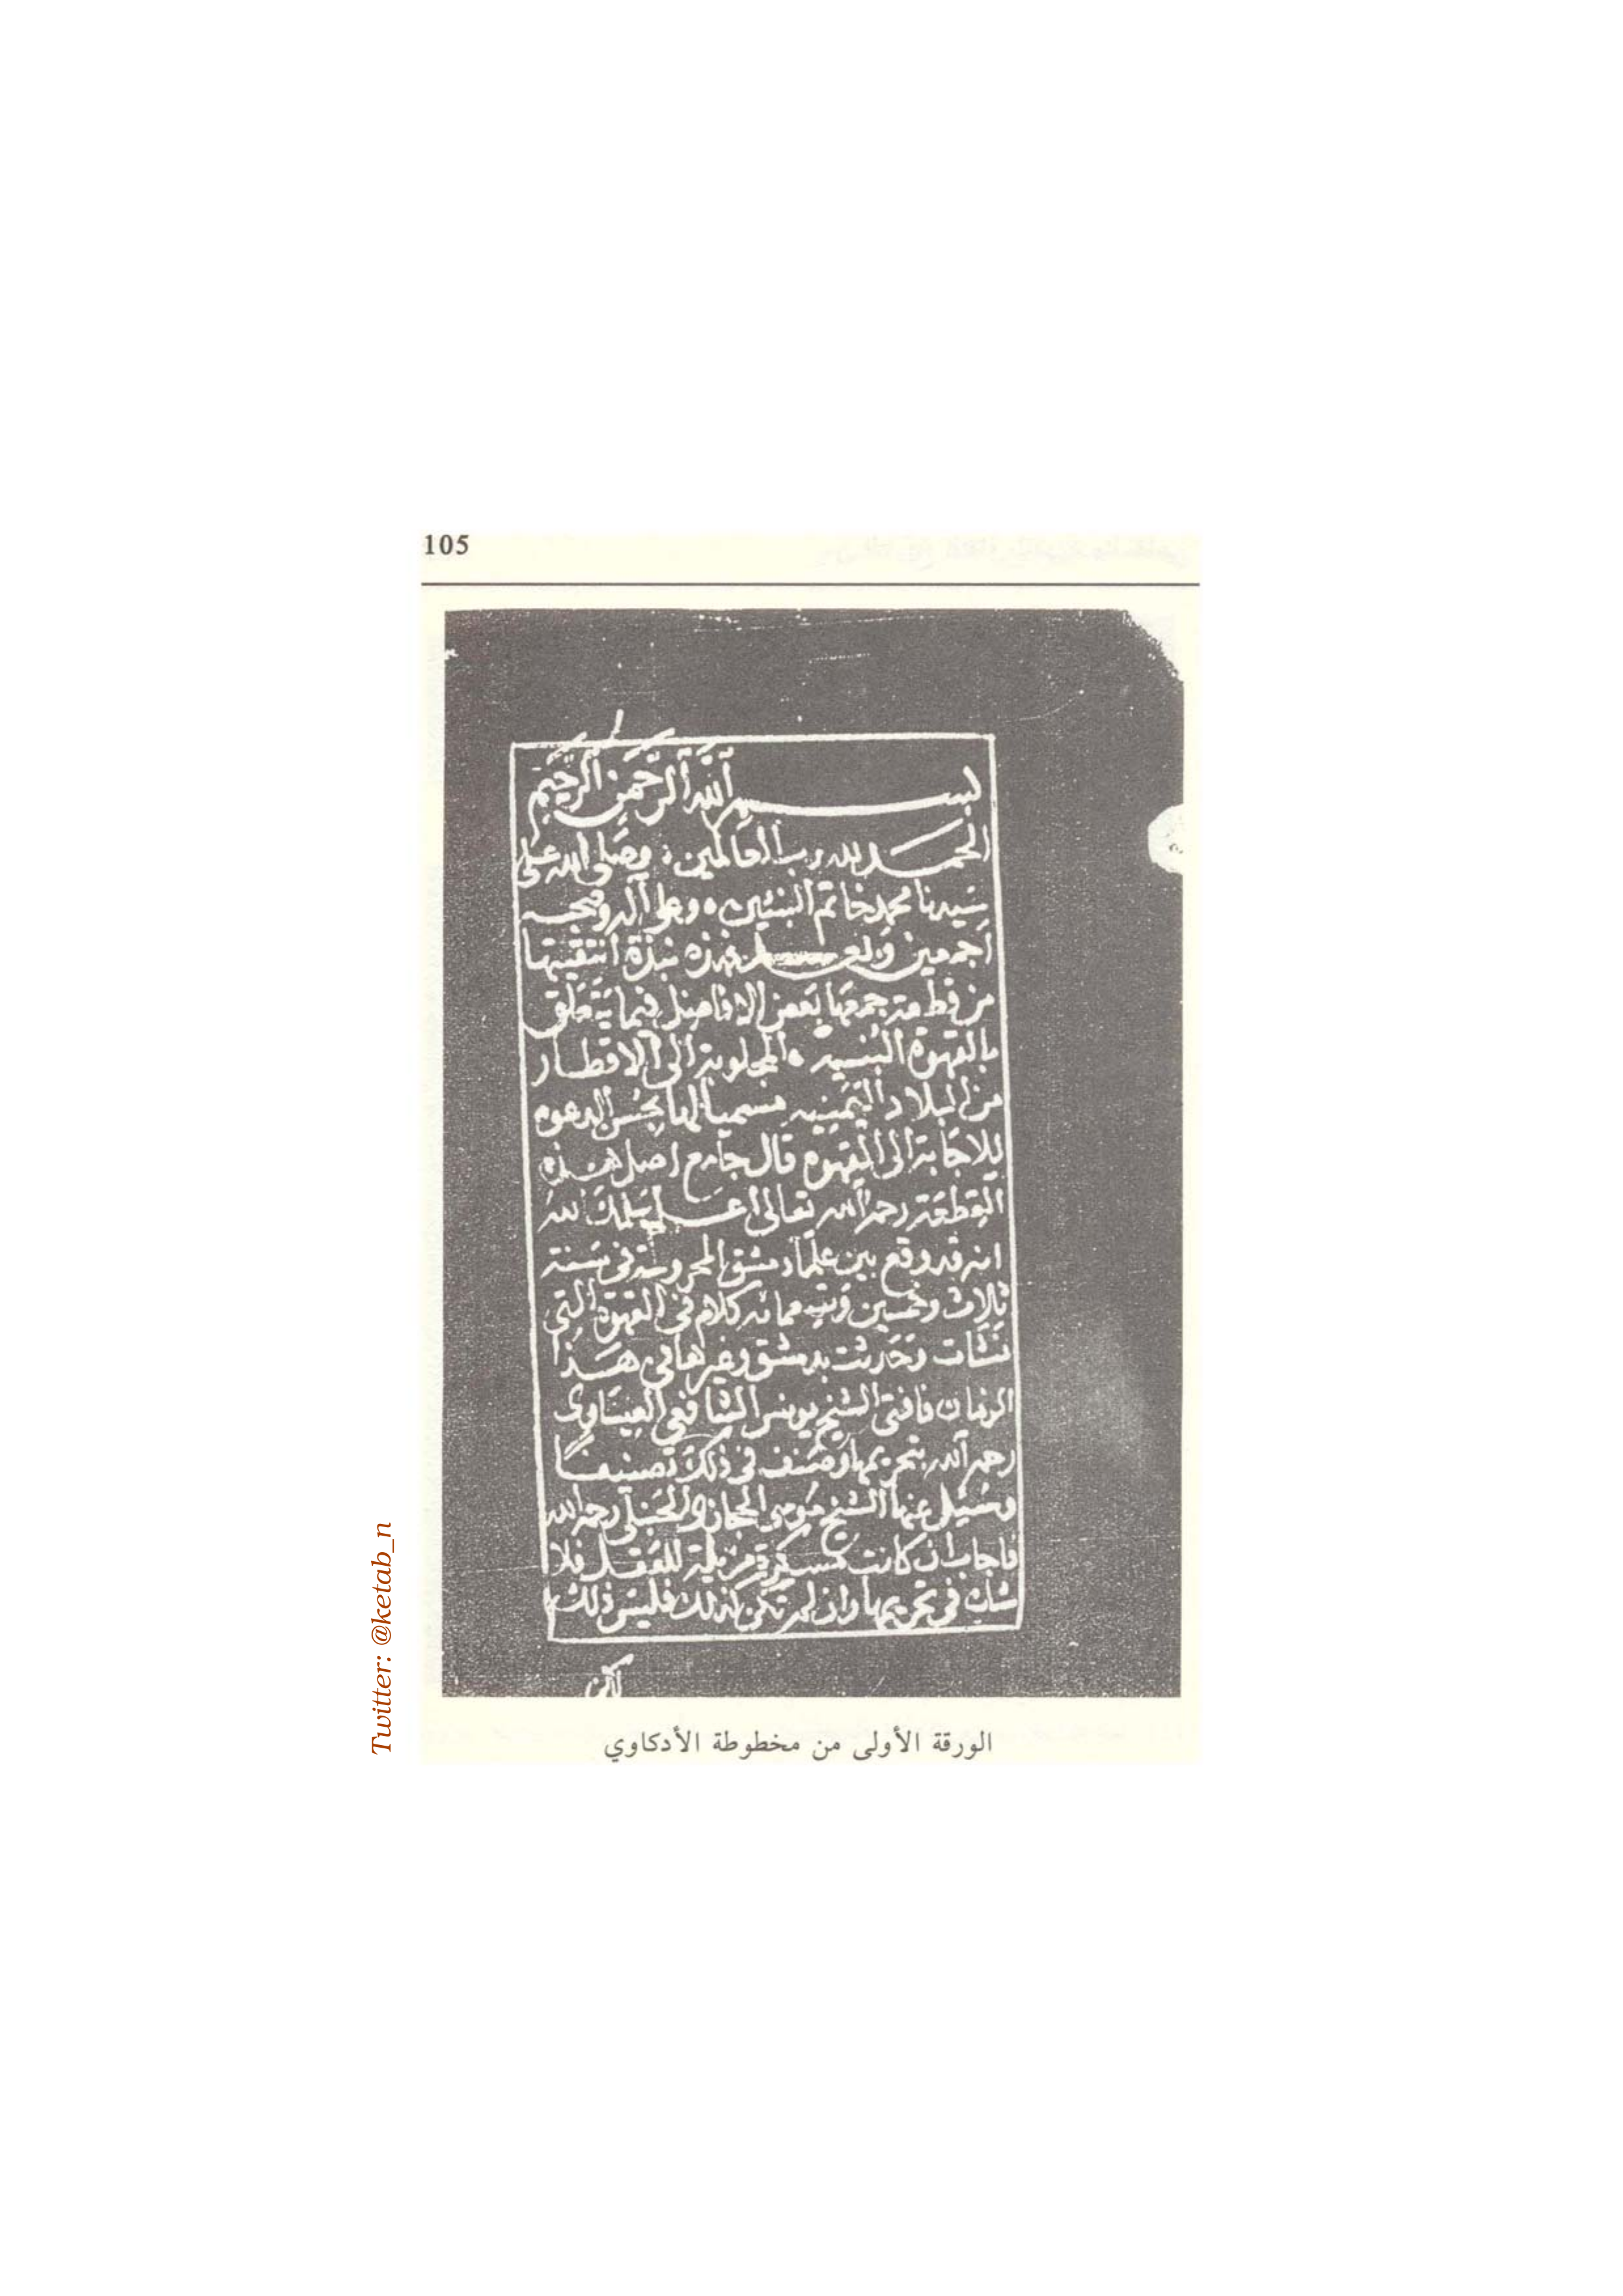 105
بســــم الله الرحمن الرحيم
الحمد لله رب العالمين وصلى الله على
سيدنا محمد خاتم النبيين وعلى آله وصحبه
اجمعين وبعد فهذه نبذة انتقيتها
من قطعة جمعها بعض الافاضل فيما يتعلق
بالقهوة البنيه المجلوبة الى الاقطار
من البلاد اليمنيه مسميا لها بحسن الدعوه
للاجابة الى القهوه قال جامع اصل هذه
القطعة رحمه الله تعالى اعلم سلمك الله
انه قد وقع بين علماء دمشق المحروسة في سنة
ثلاث وخمسين وتسعمائه كلام في القهوة التي
نشات وحدثت بدمشق وغيرها في هذا
الزمان فافتى الشيخ يونس الشافعي العيساوى
رحمه الله بتحريمها وصنف في ذلك تصنيفا
وسئل عنها الشيخ موسى الحجازى الحنبلي رحمه الله
فاجاب ان كانت مسكرة مزيلة للعقل فلا
شك في تحريمها وان لم تكن كذلك فليس ذلك
لاكن
الورقة الأولى من مخطوطة الأدكاوي
Twitter: @ketab_n